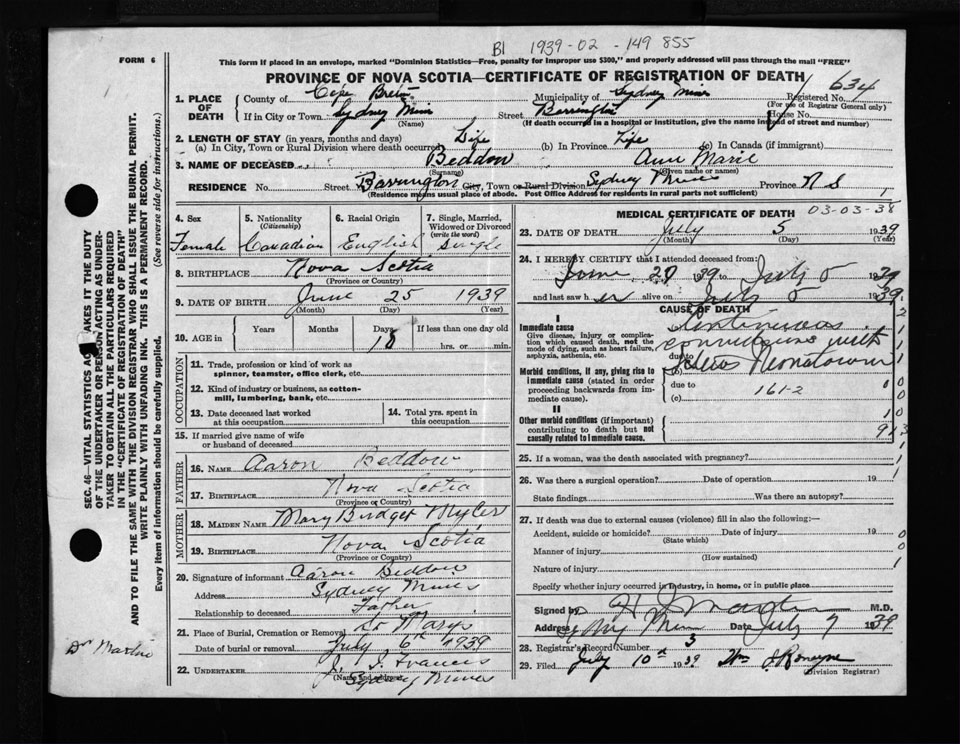 B1 1939-02-149 855
FORM 6
This form if placed in an envelope, marked "Dominion Statistics—Free, penalty for improper use $300," and properly addressed will pass through the mail "FREE"
PROVINCE OF NOVA SCOTIA—CERTIFICATE OF REGISTRATION OF DEATH
634
1. PLACE OF DEATH
County of Cape Breton Municipality of Sydney Mines Registered No.
(For use of Registrar General only)
If in City or Town Sydney Mines Street Barrington House No.
(Name) (If death occurred in a hospital or institution, give the name instead of street and number)
2. LENGTH OF STAY (in years, months and days)
(a) In City, Town or Rural Division where death occurred Life (b) In Province Life (c) In Canada (if immigrant)
3. NAME OF DECEASED Beddow Ann Marie
(Surname) (Given name or names)
RESIDENCE No. Street Barrington City, Town or Rural Division Sydney Mines Province N S
(Residence means usual place of abode. Post Office Address for residents in rural parts not sufficient)
1
4. Sex Female
5. Nationality (Citizenship) Canadian
6. Racial Origin English
7. Single, Married, Widowed or Divorced (write the word) Single
8. BIRTHPLACE Nova Scotia
(Province or Country)
9. DATE OF BIRTH June 25 1939
(Month) (Day) (Year)
10. AGE in Years Months Days If less than one day old
hrs. or min.
OCCUPATION
11. Trade, profession or kind of work as spinner, teamster, office clerk, etc.
12. Kind of industry or business, as cotton-mill, lumbering, bank, etc.
13. Date deceased last worked at this occupation
14. Total yrs. spent in this occupation
15. If married give name of wife or husband of deceased
FATHER
16. NAME Aaron Beddow
17. BIRTHPLACE Nova Scotia
(Province or Country)
MOTHER
18. MAIDEN NAME Mary Bridget Myler
19. BIRTHPLACE Nova Scotia
(Province or Country)
20. Signature of informant Aaron Beddow
Address Sydney Mines
Relationship to deceased Father
21. Place of Burial, Cremation or Removal St Marys
Date of burial or removal July 6th 1939
22. UNDERTAKER J. J. Francis
(Name and address) Sydney Mines
MEDICAL CERTIFICATE OF DEATH 03-03-38
23. DATE OF DEATH July 5 1939
(Month) (Day) (Year)
24. I HEREBY CERTIFY that I attended deceased from:
39 to July 5 1939
and last saw her alive on July 5 1939
CAUSE OF DEATH
I
Immediate cause
Give disease, injury or complication which caused death, not the mode of dying, such as heart failure, asphyxia, asthenia, etc.
Continuous convulsions with
due to
(b)
Morbid conditions, if any, giving rise to immediate cause (stated in order proceeding backwards from immediate cause).
due to
(c) 161-2
II
Other morbid conditions (if important) contributing to death but not causally related to immediate cause.
25. If a woman, was the death associated with pregnancy?
26. Was there a surgical operation? Date of operation 19
State findings Was there an autopsy?
27. If death was due to external causes (violence) fill in also the following:—
Accident, suicide or homicide? Date of injury 19
(State which)
Manner of injury
(How sustained)
Nature of injury
Specify whether injury occurred in industry, in home, or in public place
Signed by M.D.
Address Syd Mines Date July 7 1939
28. Registrar's Record Number 3
29. Filed July 10th 1939
(Division Registrar)
SEC. 46—VITAL STATISTICS ACT MAKES IT THE DUTY OF THE UNDERTAKER OR PERSON ACTING AS UNDERTAKER TO OBTAIN ALL THE PARTICULARS REQUIRED IN THE "CERTIFICATE OF REGISTRATION OF DEATH" AND TO FILE THE SAME WITH THE DIVISION REGISTRAR WHO SHALL ISSUE THE BURIAL PERMIT.
WRITE PLAINLY WITH UNFADING INK. THIS IS A PERMANENT RECORD.
Every item of information should be carefully supplied. (See reverse side for instructions.)